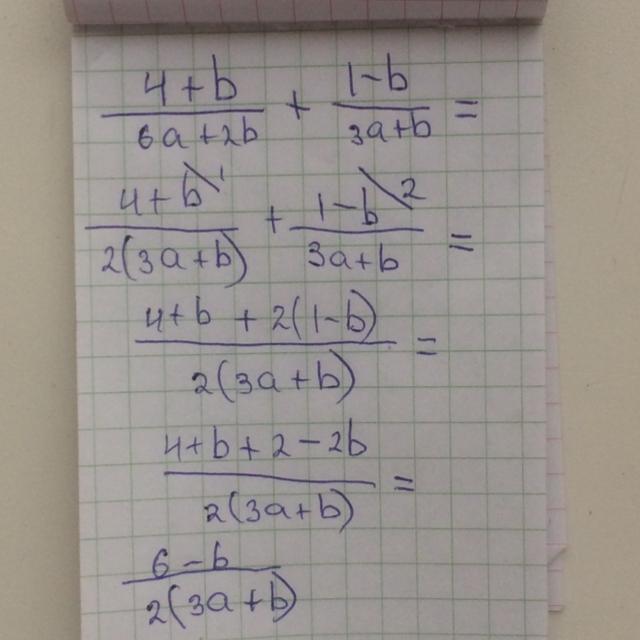 (4+b)/(6a+2b) + (1-b)/(3a+b) =
(4+b\1)/(2(3a+b)) + (1-b\2)/(3a+b) =
(4+b+2(1-b))/(2(3a+b)) =
(4+b+2-2b)/(2(3a+b)) =
(6-b)/(2(3a+b))